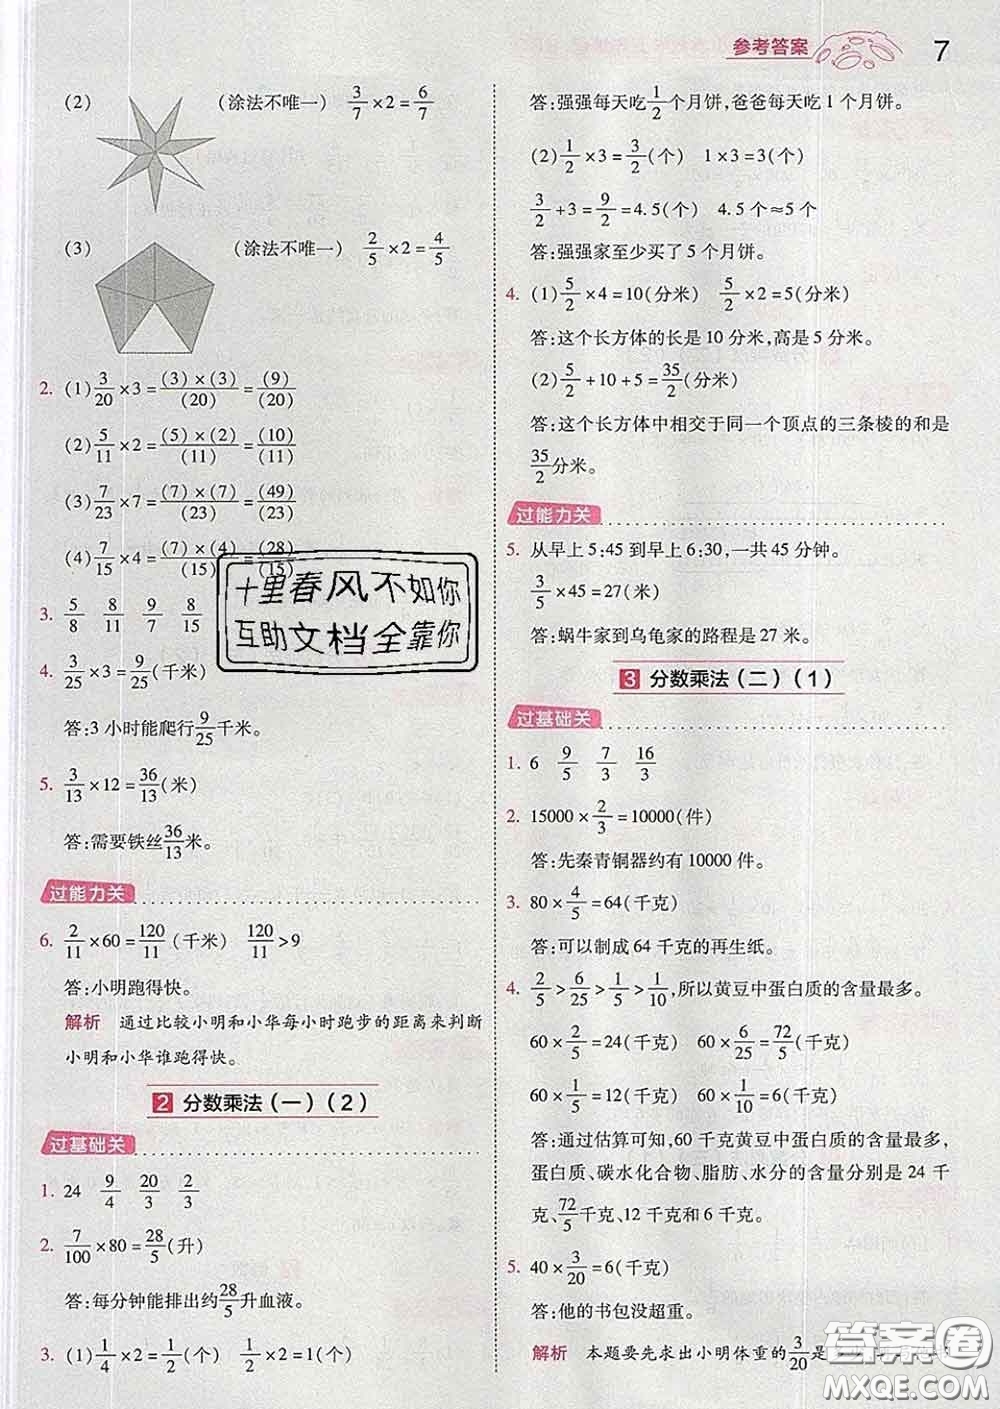 参考答案
7
(2) (涂法不唯一) 3/7×2=6/7
(3) (涂法不唯一) 2/5×2=4/5
2. (1)3/20×3=(3)×(3)/(20)=(9)/(20)
(2)5/11×2=(5)×(2)/(11)=(10)/(11)
(3)7/23×7=(7)×(7)/(23)=(49)/(23)
(4)7/15×4=(7)×(4)/(15)=(28)/(15)
3. 5/8 8/11 9/7 8/15
4. 3/25×3=9/25(千米)
答:3小时能爬行9/25千米。
5. 3/13×12=36/13(米)
答:需要铁丝36/13米。
过能力关
6. 2/11×60=120/11(千米) 120/11>9
答:小明跑得快。
解析 通过比较小明和小华每小时跑步的距离来判断
小明和小华谁跑得快。
2 分数乘法(一)(2)
过基础关
1. 24 9/4 20/3 2/3
2. 7/100×80=28/5(升)
答:每分钟能排出约28/5升血液。
3. (1)1/4×2=1/2(个) 1/2×2=1(个)
答:强强每天吃1/2个月饼,爸爸每天吃1个月饼。
(2)1/2×3=3/2(个) 1×3=3(个)
3/2+3=9/2=4.5(个) 4.5个≈5个
答:强强家至少买了5个月饼。
4. (1)5/2×4=10(分米) 5/2×2=5(分米)
答:这个长方体的长是10分米,高是5分米。
(2)5/2+10+5=35/2(分米)
答:这个长方体中相交于同一个顶点的三条棱的和是
35/2分米。
过能力关
5. 从早上5:45到早上6:30,一共45分钟。
3/5×45=27(米)
答:蜗牛家到乌龟家的路程是27米。
3 分数乘法(二)(1)
过基础关
1. 6 9/5 7/3 16/3
2. 15000×2/3=10000(件)
答:先秦青铜器约有10000件。
3. 80×4/5=64(千克)
答:可以制成64千克的再生纸。
4. 2/5>6/25>1/5>1/10,所以黄豆中蛋白质的含量最多。
60×2/5=24(千克) 60×6/25=72/5(千克)
60×1/5=12(千克) 60×1/10=6(千克)
答:通过估算可知,60千克黄豆中蛋白质的含量最多,
蛋白质、碳水化合物、脂肪、水分的含量分别是24千
克、72/5千克、12千克和6千克。
5. 40×3/20=6(千克)
答:他的书包没超重。
解析 本题要先求出小明体重的3/20是
十里春风不如你
互助文档全靠你
答案圈
MXQE.COM